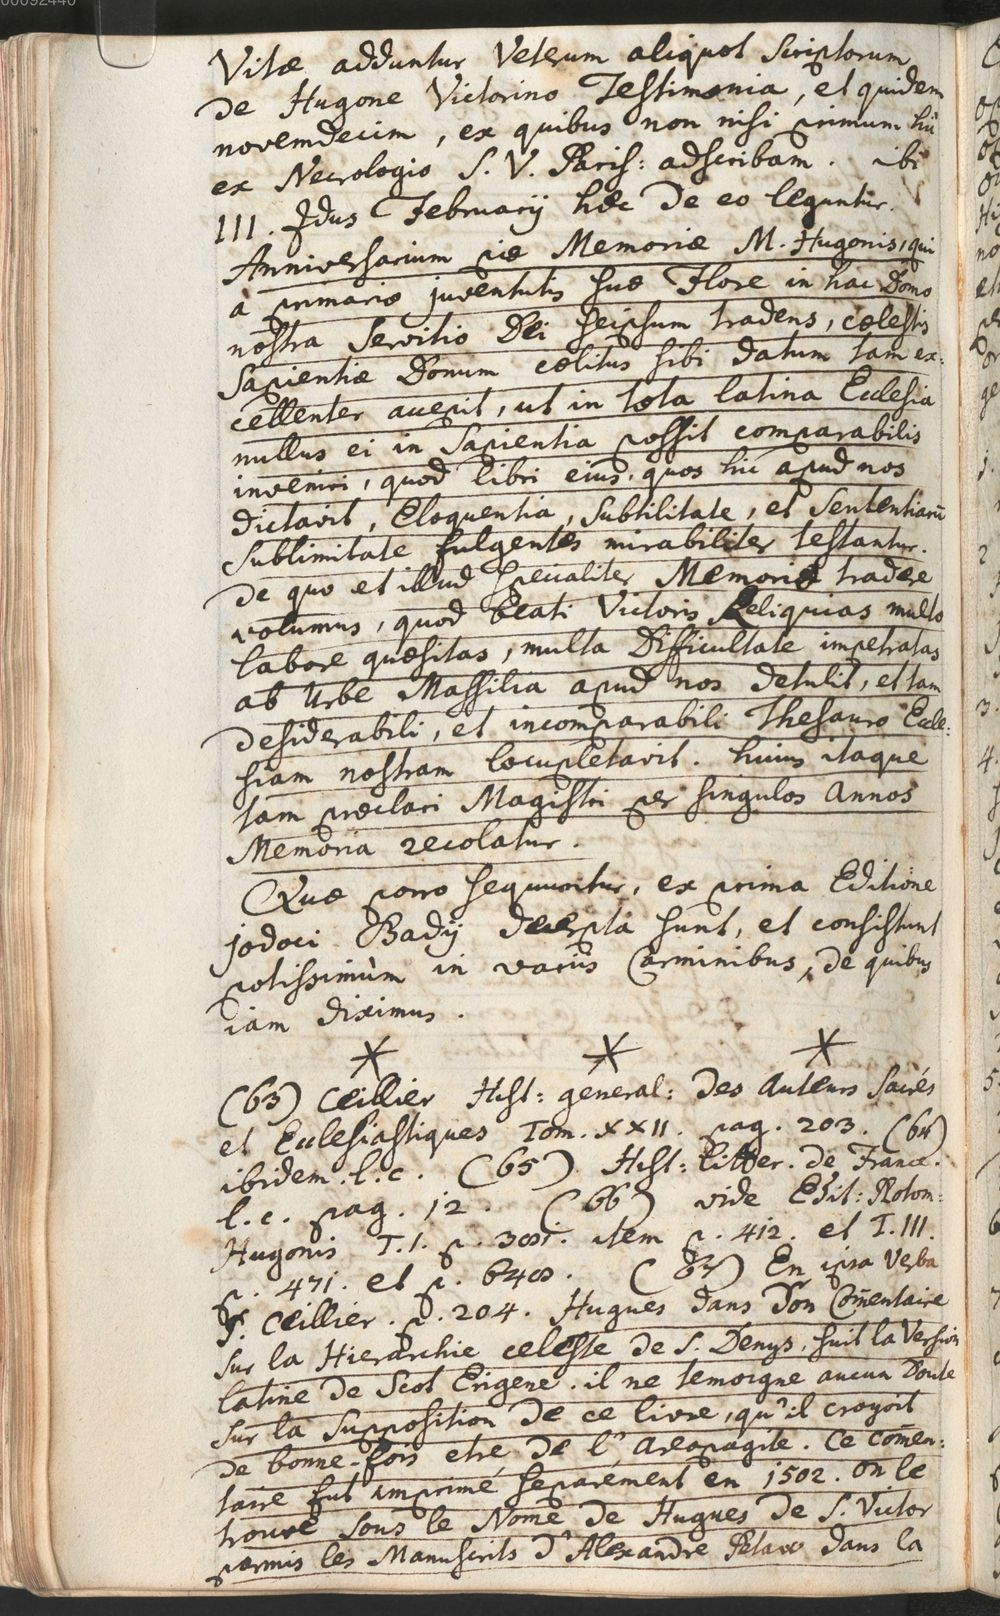 00092440
Vitæ adduntur Veterum aliquot Scriptorum
de Hugone Victorino Testimonia, et quidem
novemdecim, ex quibus non nisi primum hic
ex Necrologio S. V. Paris: adscribam. ibi
III. Idus Februarij hæc de eo leguntur.
Anniversarium piæ Memoriæ M. Hugonis, qui
a primario juventutis suæ Flore in hac Domo
nostra Servitio Dei seipsum tradens, cœlestis
Sapientiæ Donum cœlitus sibi datum tam ex:
cellenter accepit, ut in tota latina Ecclesia
nullus ei in Sapientia possit comparabilis
inveniri, quod libri eius, quos hic apud nos
dictavit, Eloquentia, Subtilitate, et Sententiarū
Sublimitate fulgentes mirabiliter testantur.
de quo et illud specialiter Memoriæ tradere
volumus, quod beati Victoris Reliquias multo
labore quæsitas, multa Difficultate impetratas
ab Urbe Massilia apud nos detulit, et tam
desiderabili, et incomparabili Thesauro Eccle:
siam nostram locupletavit. huius itaque
tam præclari Magistri per singulos Annos
Memoria recolatur.
Quæ porro sequuntur, ex prima Editione
jodoci Badij decerpta sunt, et consistunt
potissimùm in variis Carminibus, de quibus
iam diximus.
(63) Ceillier Hist: general: des Auteurs Sacrés
et Ecclesiastiques Tom. XXII. pag. 203. (64)
ibidem. l. c. (65) Hist: litter. de France.
l. c. pag. 12. (66) vide Edit: Rotom:
Hugonis T. I. p. item p. 412. et T. III.
p. 471. et p. (67) En ipsa Verba
Ceillier. p. 204. Hugues dans son Com̄entaire
sur la Hierarchie celeste de S. Denys, suit la Version
latine de Scot Erigene. il ne temoigne aucun Doute
sur la Supposition de ce livre, qu'il croyoit
de bonne-fois etre de l'Areopagite. Ce com̄en:
taire fut imprimé separement en 1502. on le
trouve sous le Nome de Hugues de S. Victor
parmis les Manuscrits d'Alexandre Petau dans la